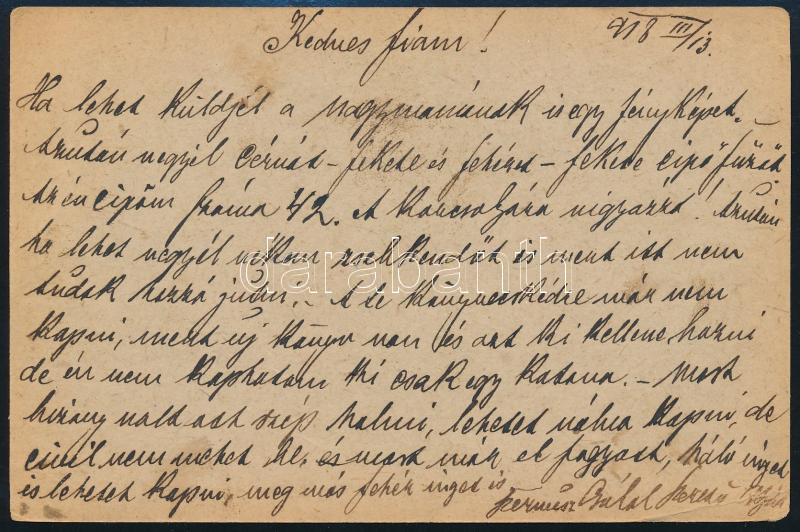 Kedves fiam! 918 III/13.
Ha lehet küldjél a nagymamának is egy fényképet. –
Azután vegyél cérnát – fekete és fehéret – fekete cipő fűzőt
Az én cipőm száma 42. A korcsolyára vigyázzá! Azután
ha lehet vegyél nekem zsebkendőt is mert itt nem
darabanth
tudok hozzá jutni. – A te könyvecskédre már nem
kapni, mert új könyv van és azt ki kellene hozni
de én nem kaphatom ki csak egy katona. – Most
volt ott szép , lehetet volna kapni, de
civil nem mehet be. és most már el fogyott, háló inget
is lehetet kapni, meg más fehér inget is